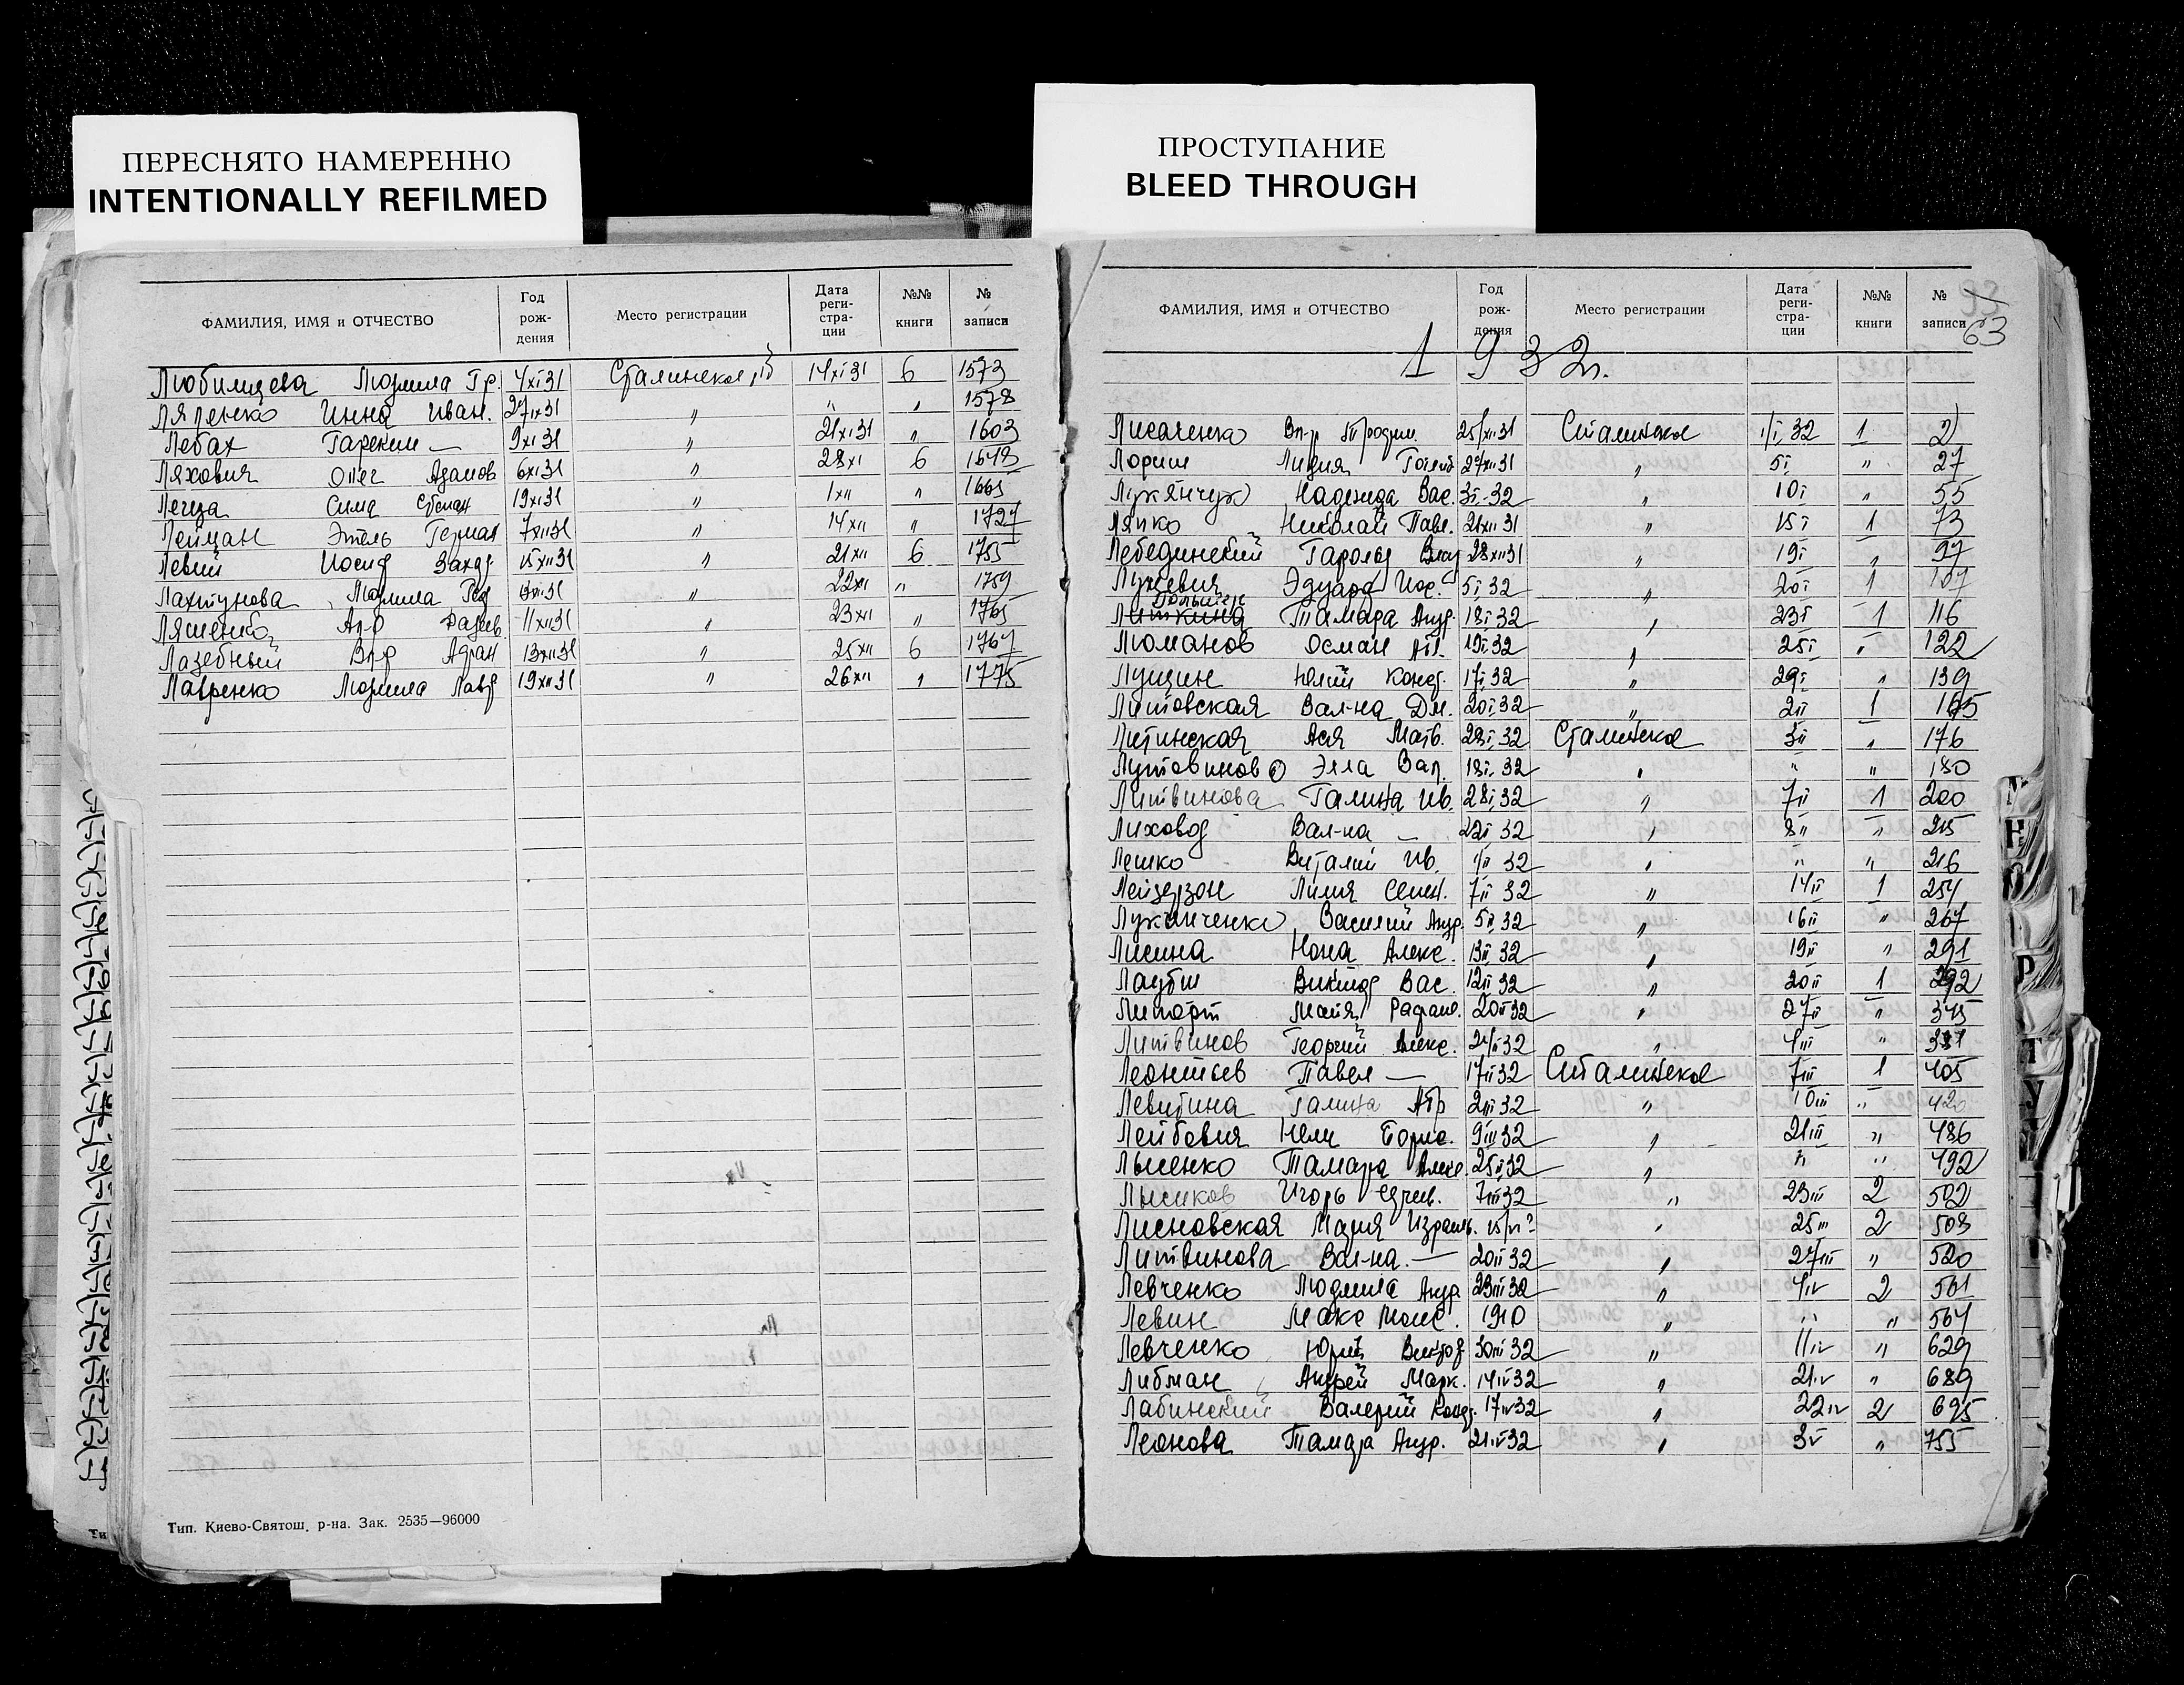 ПЕРЕСНЯТО НАМЕРЕННО
INTENTIONALLY REFILMED
ФАМИЛИЯ, ИМЯ и ОТЧЕСТВО Год рож-дения Место регистрации Дата реги-стра-ции №№ книги № записи
Любимцева Людмила Гр. 4 XI 31 Сталинское 14 XI 31 6 1573
Ляпенко Инна Иван. 27 IX 31 " " " 1578
Лебах 9 XI 31 " 21 XI 31 " 1603
Ляхович Олег Адамов 6 XI 31 " 28 XI 6 1643
Сима 19 XI 31 " 1 XII " 1665
Лейцан Этель Герман 7 XII 31 " 14 XII " 1727
Левит Иосиф Захар. 15 XII 31 " 21 XII 6 1755
Лахтунова Людмила " 22 XII " 1759
Ляшенко 11 XII 31 " 23 XII " 1765
Лазебный Вл-р Адран 13 XII 31 " 25 XII 6 1767
Лавренко Людмила Павл 19 XII 31 " 26 XII " 1775
Тип. Киево-Святош. р-на. Зак. 2535—96000
ПРОСТУПАНИЕ
BLEED THROUGH
63
ФАМИЛИЯ, ИМЯ и ОТЧЕСТВО Год рож-дения Место регистрации Дата реги-стра-ции №№ книги № записи
1932 г.
Лисаченко Вл-р Трофим. 25/XII 31 Сталинское 1/I 32 1 2
Лориш Лидия 27 XII 31 " 5 I " 27
Лукянчук Надежда Вас. 3 I-32 " 10 I " 55
Лапко Николай Павл. 21 XII 31 " 15 I 1 73
Лебединский Гарольд 28 XII 31 " 19 I " 97
Луцевич Эдуард Иос. 5 I 32 " 20 I 1 107
Тамара Анд. 18 I 32 " 23 I 1 116
Люманов Осман 19 I 32 " 25 I " 122
Лущин Юлий Конст. 17 I 32 " 29 I " 139
Литовская Вал-на Дм. 20 I 32 " 2 II 1 165
Литинская Ася Матв. 28 I 32 Сталинское 3 II " 176
Лутовинова Элла Вал. 18 I 32 " " " 180
Литвинова Галина Ив. 28 I 32 " 7 II 1 200
Лиховод Вал-на — 22 I 32 " 8 II " 215
Лешко Виталий Ив. 1 II 32 " " " 216
Лейзерзон Лилия Семен. 7 II 32 " 14 II 1 254
Лукьянченко Василий Андр. 5 II 32 " 16 II " 267
Лисина Нона Алекс. 13 II 32 " 19 II " 291
Виктор Вас. 12 II 32 " 20 II 1 292
Липорт Майя Рафаил. 20 II 32 " 27 II " 345
Литвинов Георгий Алекс. " 4 III "
Леонтьев Павел — 17 II 32 Сталинское 7 III 1 405
Левитина Галина 2 III 32 " 10 III " 420
Лейбович Нели Борис. 9 III 32 " 21 III " 486
Лысенко Тамара Алекс. " " " 492
Лысиков Игорь 7 III 32 " 23 III 2 502
Лисновская Мария Израиль. " 25 III 2 503
Литвинова Вал-на. — 20 II 32 " 27 III " 520
Левченко Людмила Андр. 23 III 32 " 4 IV 2 561
Левин Макс Моис. 1910 " " " 564
Левченко Юрий Виктор 30 III 32 " 11 IV " 629
Либман Андрей Марк. 14 IV 32 " 21 IV " 689
Лабинский Валерий Конд. 17 IV 32 " 22 IV 2 695
Леонова Тамара Андр. 21 IV 32 " 3 V " 755